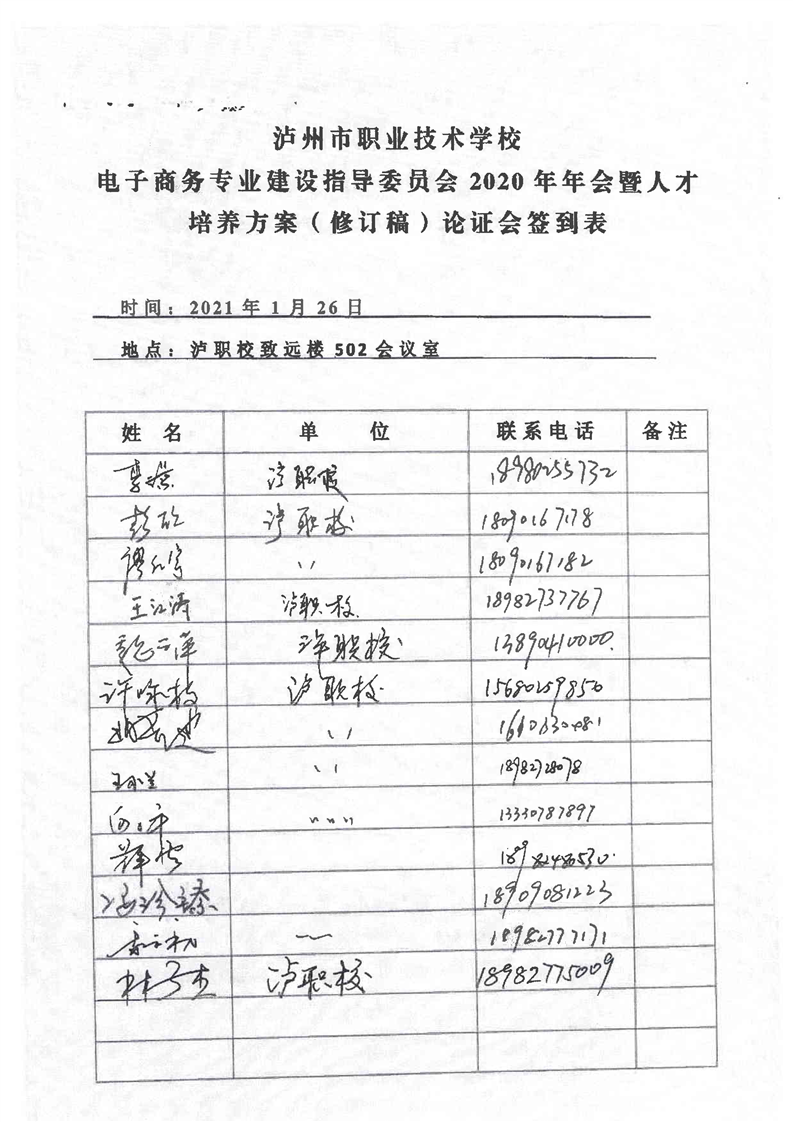 泸州市职业技术学校
电子商务专业建设指导委员会 2020 年年会暨人才
培养方案（修订稿）论证会签到表
时间：2021 年 1 月 26 日
地点：泸职校致远楼 502 会议室
姓 名 单 位 联系电话 备注
泸职校 18980255732
彭欣 泸职校 18090167178
〃 18090167182
王江涛 泸职校 18982737767
泸职校 13890410000
许咏梅 泸职校 15680259850
〃
〃 18982728078
〃〃 13330787897
18909081223
18982777171
林子杰 泸职校 18982775009